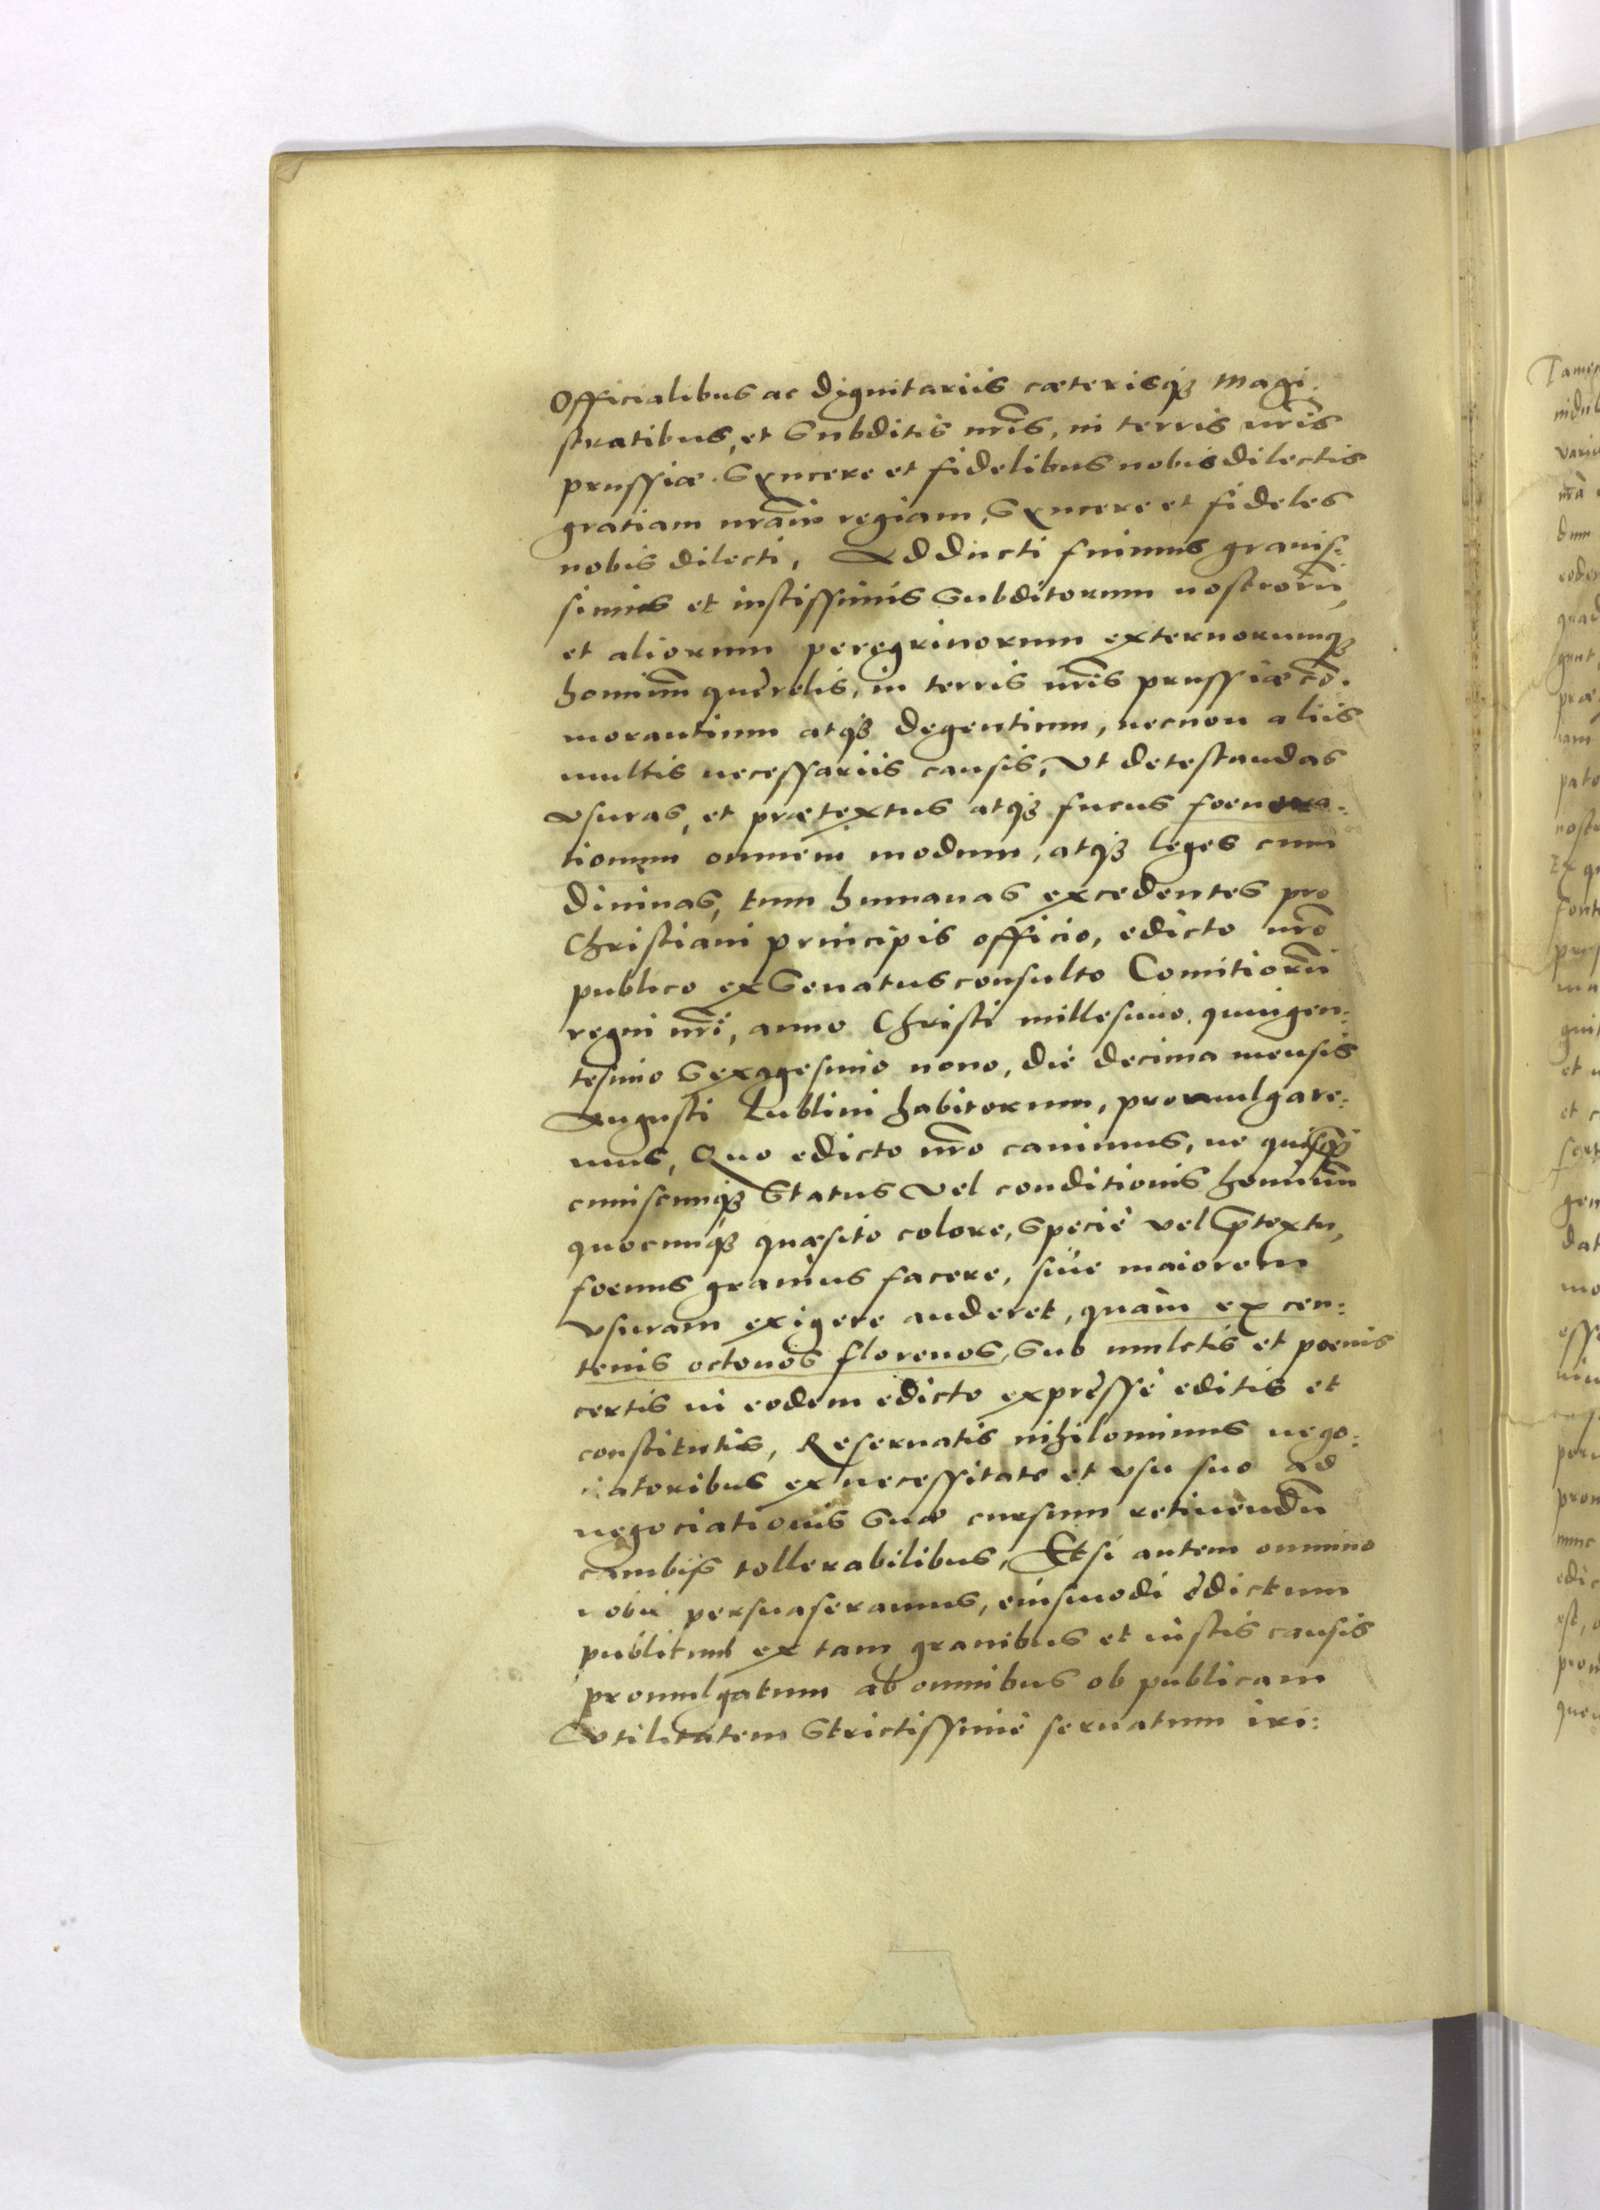 Officialibus ac dignitariis caeterisq₃ Magi:
stratibus, et Subditis nr̃is, in terris nr̃is
prussiae. Syncere et fidelibus nobis dilectis
gratiam nr̃am regiam, Syncere et fideles
nobis dilecti, Adducti fuimus grauis:
simis et iustissimis Subditorum nostrorũ,
et aliorum peregrinorum externorumq₃
hominũ querelis, in terris nr̃is prussiae cõ.
morantium atq₃ degentium, necnon aliis
multis necessariis causis, Vt detestandas
vsuras, et praetextus atq₃ fucus foenera:
tionum omnem modum, atq₃ leges cum
diuinas, tum humanas excedentes pro
Christiani principis officio, edicto nr̃o
publico ex Senatusconsulto Comitiorũ
regni nr̃i, anno Christi millesimo, quingen:
tesimo Sexagesimo nono, die decima mensis
Augusti Lublini habitorum, promulgare:
mus, Quo edicto nr̃o cauimus, ne quisq₃
cuiuscumq₃ Status vel conditionis hominũ
quocumq₃ quaesito colore, Specie vel p̃textu,
foenus grauius facere, siue maiorem
vsuram exigere auderet, quam ex cen:
tenis octonos florenos, Sub mulctis et poenis
certis in eodem edicto expressè editis et
constitutis, Reseruatis nihilominus nego:
iatoribus ex necessitate et vsu suo ad
negociationis Suae cursum retinendũ
cambijs tollerabilibus, Etsi autem omnino
nobis persuaseramus, eiusmodi edictum
publicum ex tam grauibus et iustis causis
promulgatum ab omnibus ob publicam
Vtilitatem Strictissimè seruatum iri: